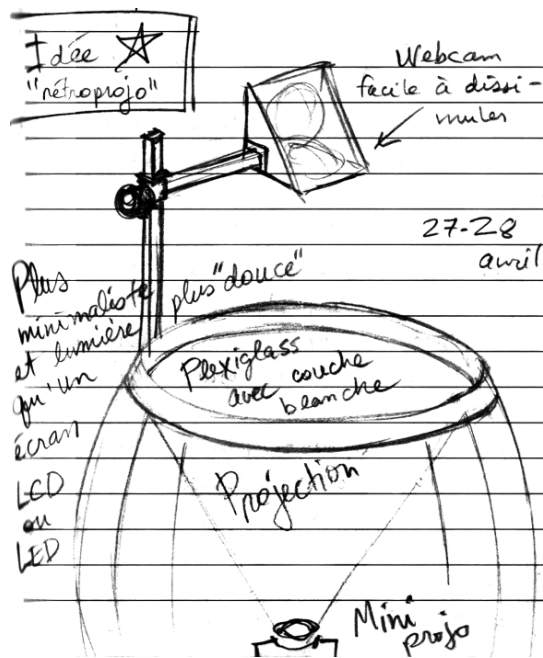 Idée
"rétroprojo"
Webcam
facile à dissi-
muler
27-28
avril
Plus
minimaliste
et lumière plus "douce"
qu'un
écran
LCD
ou
LED
Plexiglass
avec couche
blanche
Projection
Mini
projo